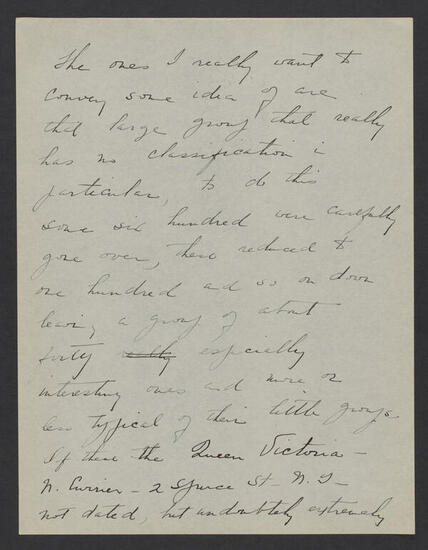 The ones I really want to
convey some idea of are
that large group that really
has no classification in
particular, to do this
some six hundred were carefully
gone over, these reduced to
one hundred and so on down
leaving a group of about
forty really especially
interesting ones and more or
less typical of their little groups.
If these the Queen Victoria -
N. Currier - 2 Spruce St - N.Y -
not dated, but undoubtedly extremely